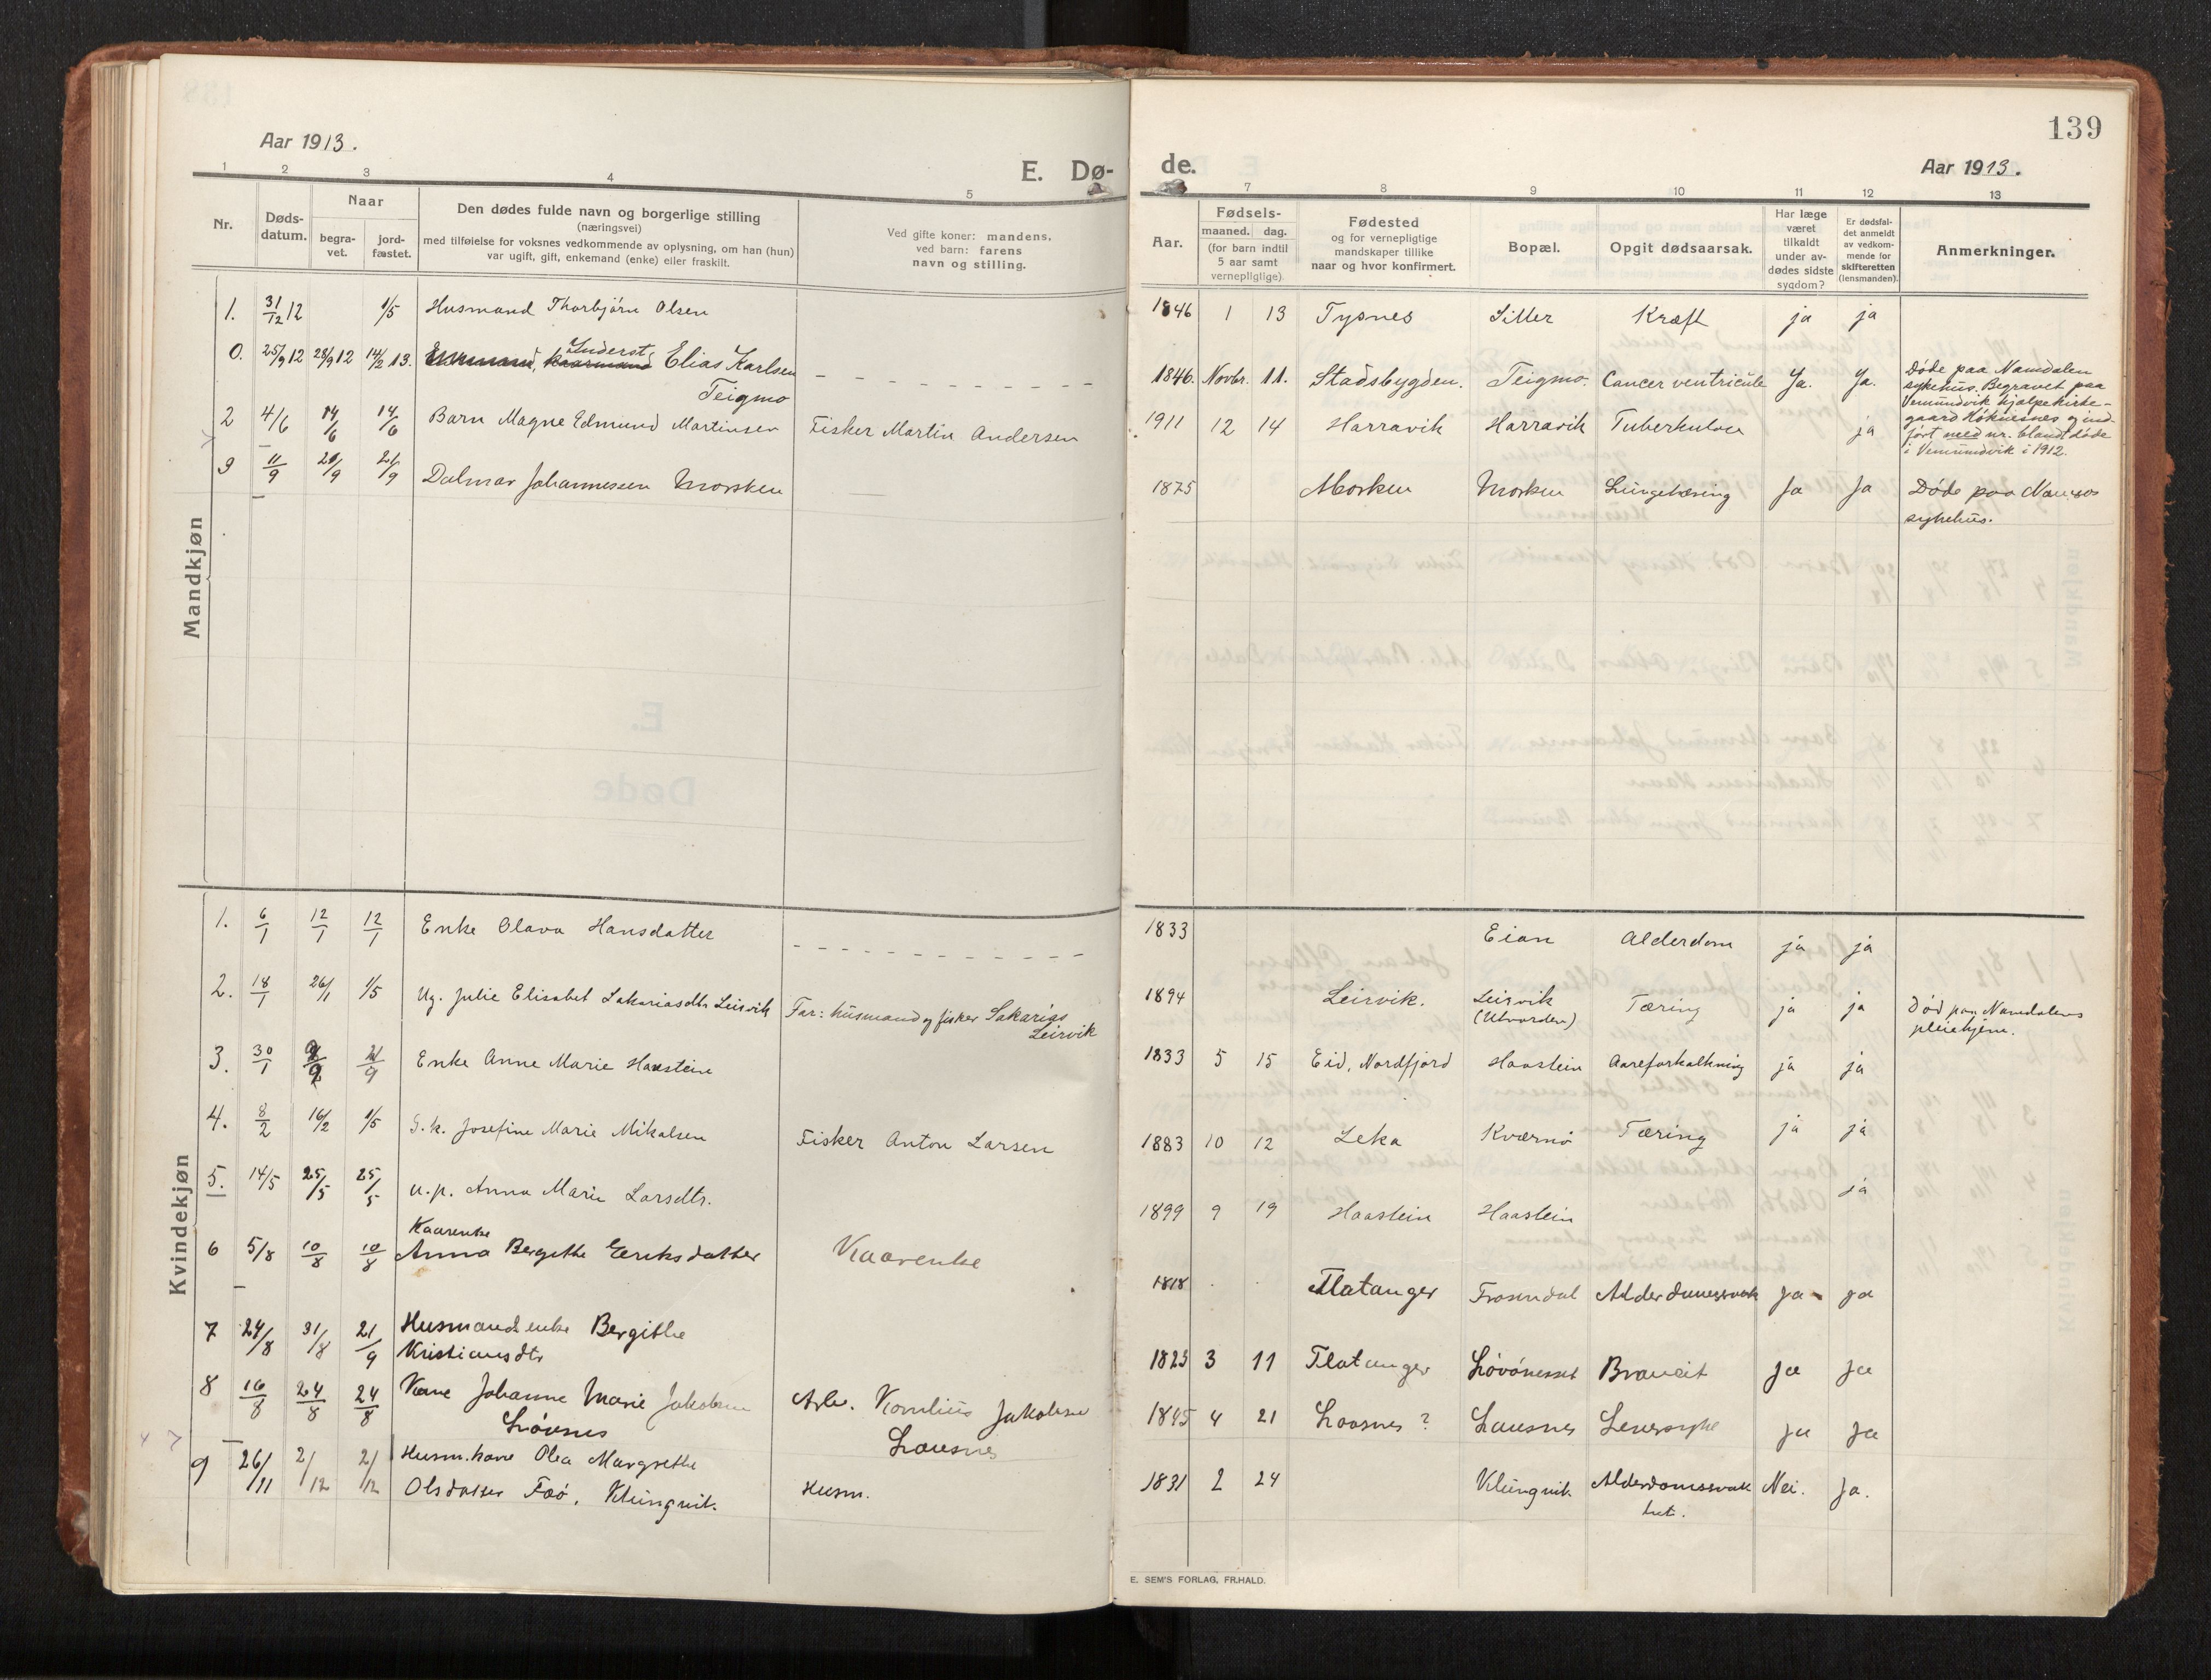 139
Aar 1913.
E. Dø-
de.
Aar 1913.
1 2 3 4 5 7 8 9 10 11 12 13
Nr.
Døds-
datum.
Naar
begra-
vet.
jord-
fæstet.
Den dødes fulde navn og borgerlige stilling
(næringsvei)
med tilføielse for voksnes vedkommende av oplysning, om han (hun)
var ugift, gift, enkemand (enke) eller fraskilt.
Ved gifte koner: mandens,
ved barn: farens
navn og stilling.
Aar.
Fødsels-
maaned. dag.
(for barn indtil
5 aar samt
vernepligtige).
Fødested
og for vernepligtige
mandskaper tillike
naar og hvor konfirmert.
Bopæl.
Opgit dødsaarsak.
Har læge
været
tilkaldt
under av-
dødes sidste
sygdom?
Er dødsfal-
det anmeldt
av vedkom-
mende for
skifteretten
(lensmanden).
Anmerkninger.
Mandkjøn
1. 31/12 12 1/5 Husmand Thorbjörn Olsen 1846 1 13 Tysnes Sitter Kræft ja ja
0. 25/9 12 28/9 12 14/2 13. Inderst, Elias Karlsen
Teigmo
1846. Novbr. 11. Stadsbygden. Teigmo. Cancer ventricule Ja. Ja.
Døde paa Namdalen
sykehus. Begravet paa
Vemundvik hjælpekirke-
gaard Høknesnes og ind-
ført med nr. blandt døde
i Vemundvik i 1912.
2 4/6 14/6 14/6 Barn Magne Edmund Martinsen Fisker Martin Andersen 1911 12 14 Harravik Harravik Tuberkulose ja
3 11/9 21/9 21/9 Dalmar Johannessen Morsken 1875 Morken Morken Lungetæring Ja Ja Døde paa Namsos
sykehus.
Kvindekjøn
1. 6/1 12/1 12/1 Enke Olava Hansdatter 1833 Eian Alderdom ja ja
2. 18/1 26/1 1/5 Ug. Julie Elisabet Sakariasdtr. Leirvik Far: husmand og fisker Sakarias
Leirvik
1894 Leirvik. Leirvik
(Utvorden)
Tæring ja ja Död paa Namdalens
pleiehjem.
3. 30/1 2/9 21/9 Enke Anne Marie Haastein 1833 5 15 Eid, Nordfjord Haastein Aareforkalkning ja ja
4. 8/2 16/2 1/5 G.k. Josefine Marie Mikalsen Fisker Anton Larsen 1883 10 12 Leka Kværnö Tæring ja ja
5. 14/5 25/5 25/5 u.p. Anna Marie Larsdtr. 1899 9 19 Haastein Haastein ja
6 5/8 10/8 10/8 Kaarenke
Anna Bergithe Eeriksdatter Kaarenke 1818 Flatanger Frosendal Alderdomssvak ja ja
7 24/8 31/8 21/9 Husmandsenke Bergithe
Kristiansdtr
1825 3 11 Flatanger Lövönesset Brancit ja ja
8 16/8 24/8 24/8 Kone Johanne Marie Jakobsen
Lövsnes
Arb. Kornelius Jakobsen
Lausnes
1845 4 21 Laasnes? Lausnes Leversyke ja Ja
9 26/11 2/12 2/12 Husm.kone Olea Margrethe
Olsdatter Faö, Klingvik.
Husm.
1831 2 24 Klingvik Alderdomssvak
het.
Nei. Ja.
E. SEM'S FORLAG, FR.HALD.